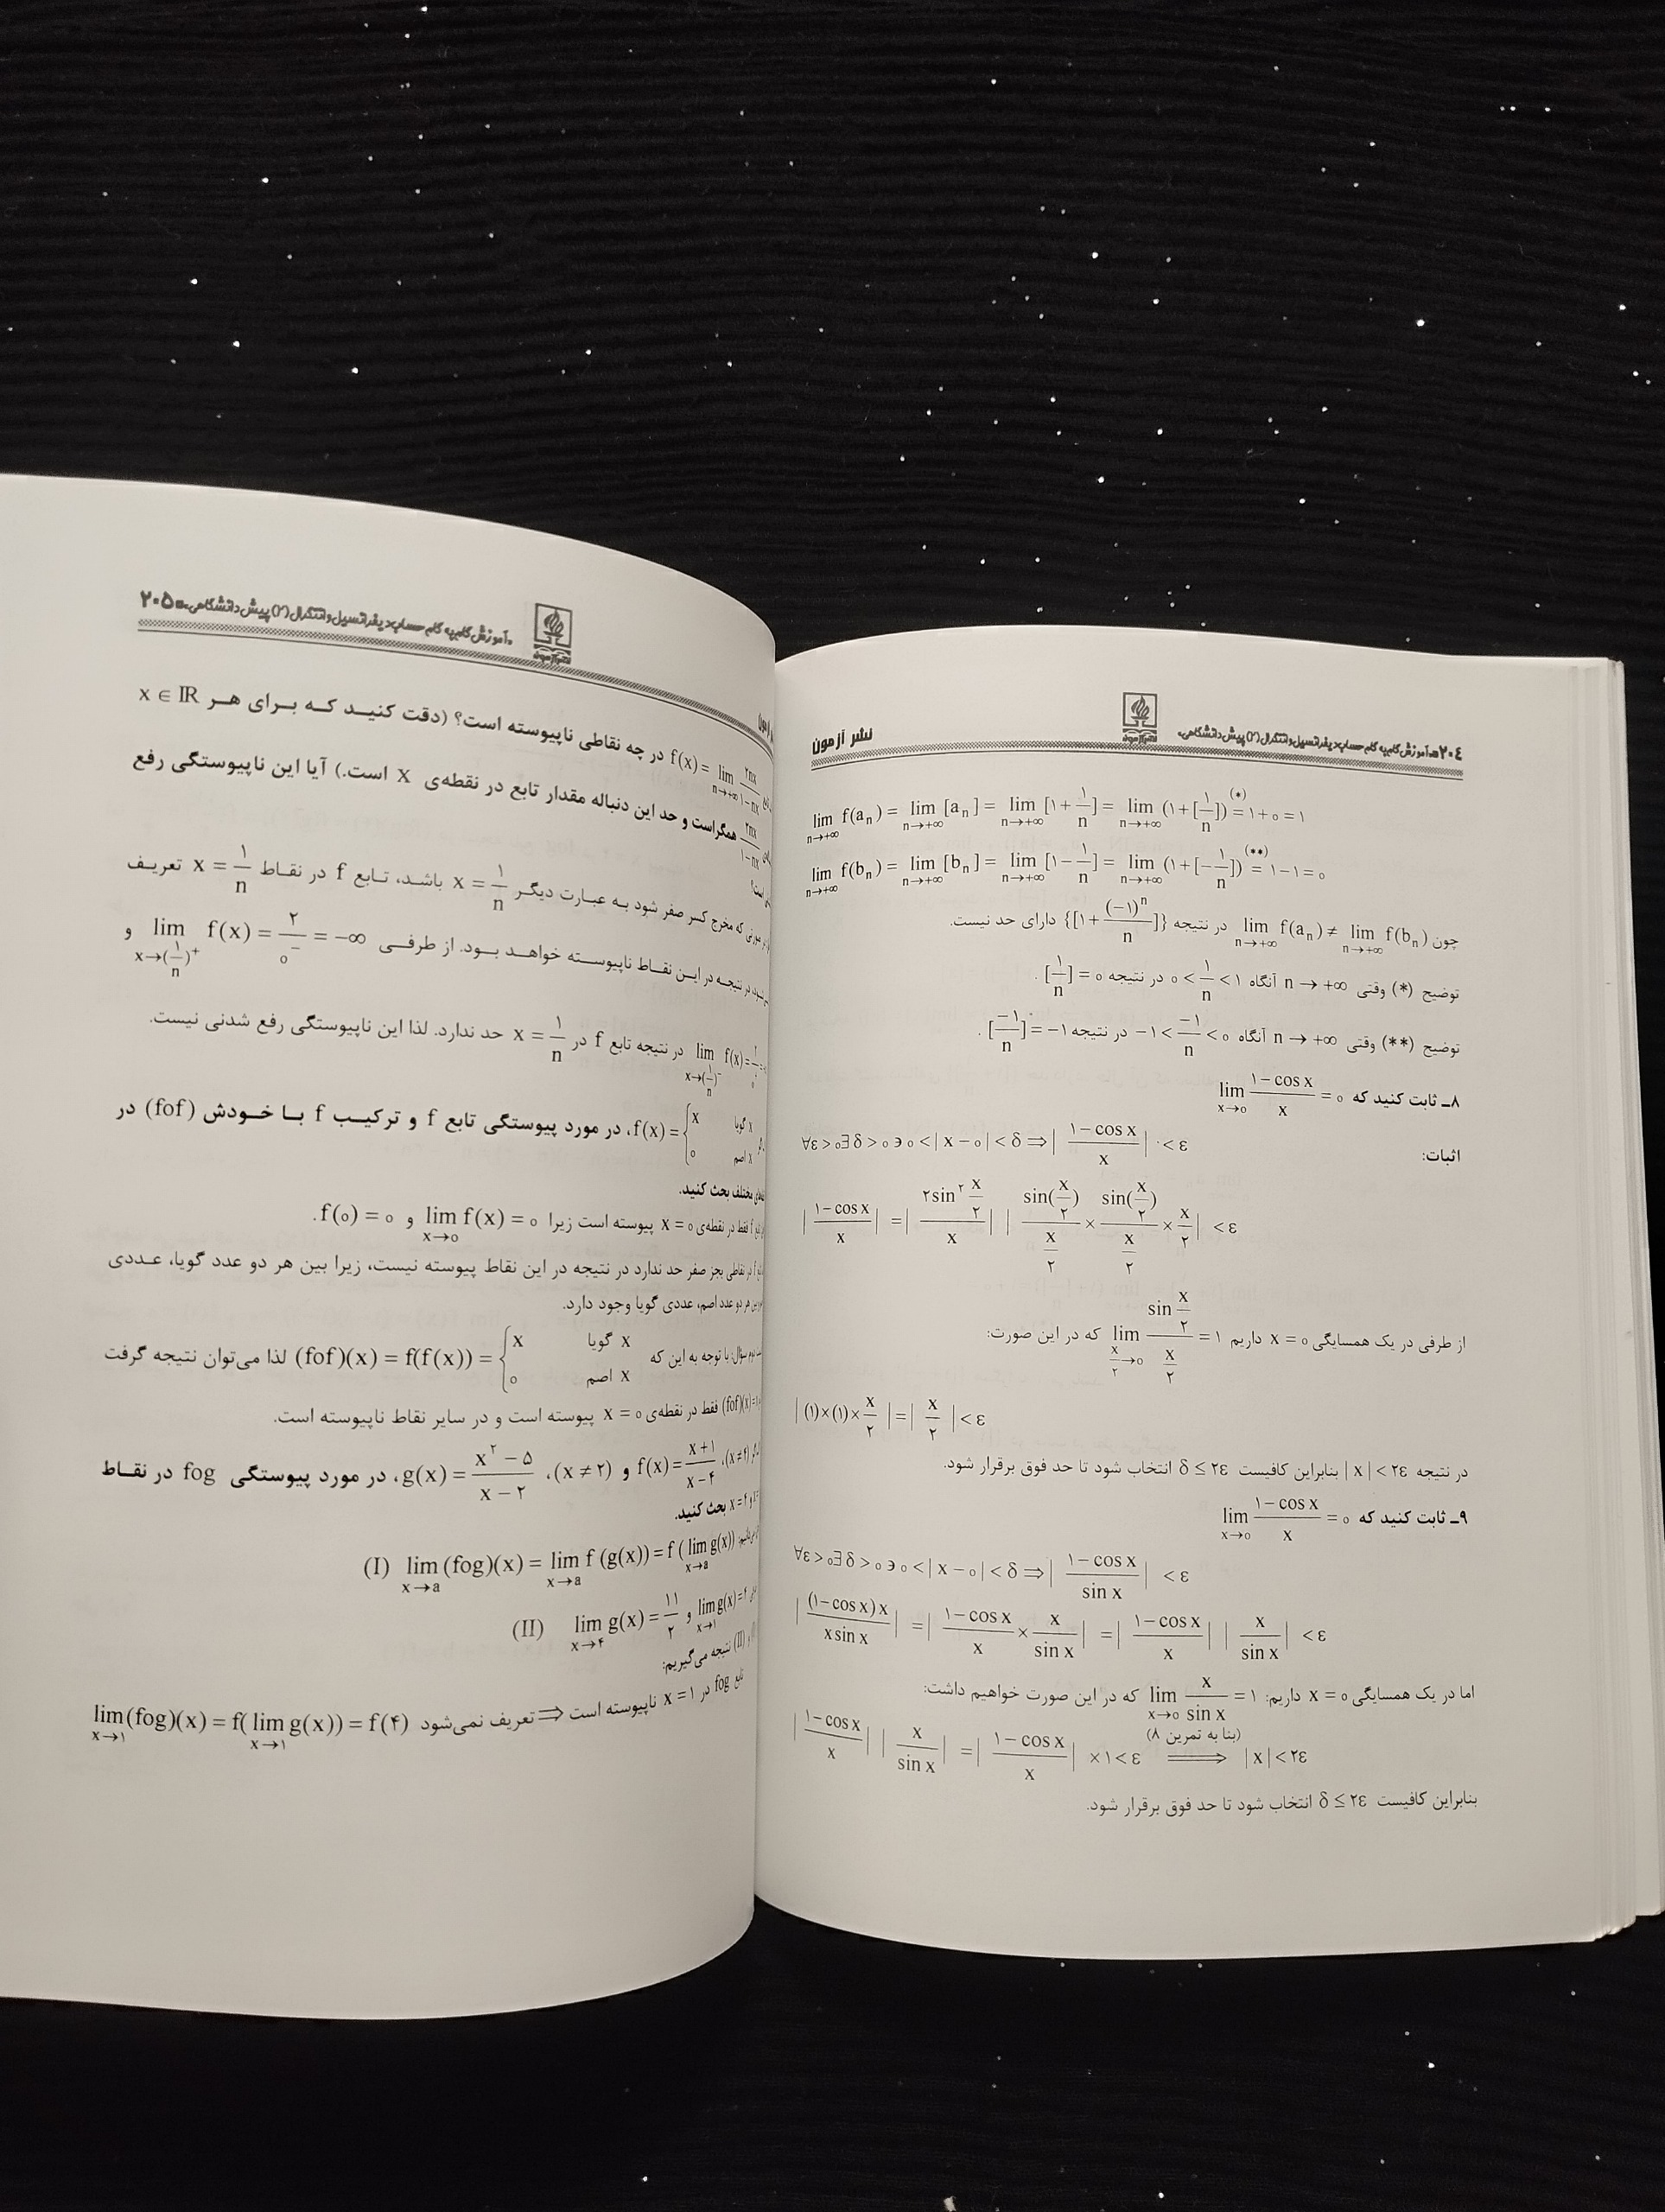 ۲۰۴ آموزش گام به گام حساب دیفرانسیل و انتگرال (۲) پیش دانشگاهی
نشر آزمون
lim f(aₙ) = lim [aₙ] = lim [۱+ ۱/n] = lim (۱+[۱/n]) (*)= ۱+۰ = ۱
n→+∞ n→+∞ n→+∞ n→+∞
lim f(bₙ) = lim [bₙ] = lim [۱− ۱/n] = lim (۱+[−۱/n]) (**)= ۱−۱ = ۰
n→+∞ n→+∞ n→+∞ n→+∞
چون lim f(aₙ) ≠ lim f(bₙ) در نتیجه {[۱+ (−۱)ⁿ/n]} دارای حد نیست.
n→+∞ n→+∞
توضیح (*) وقتی n → +∞ آنگاه ۰ < ۱/n < ۱ در نتیجه [۱/n] = ۰ .
توضیح (**) وقتی n → +∞ آنگاه −۱ < −۱/n < ۰ در نتیجه [−۱/n] = −۱ .
۸ـ ثابت کنید که lim (۱−cos x)/x = ۰
x→۰
اثبات:
∀ε>۰∃δ>۰ ∍ ۰<|x−۰|<δ ⇒ |(۱−cos x)/x| <ε
|(۱−cos x)/x| = |۲sin² (x/۲) / x| | sin(x/۲)/(x/۲) × sin(x/۲)/(x/۲) × x/۲| <ε
از طرفی در یک همسایگی x = ۰ داریم lim sin(x/۲)/(x/۲) = ۱ که در این صورت:
x/۲→۰
|(۱)×(۱)× x/۲| = | x/۲ | <ε
در نتیجه |x| < ۲ε بنابراین کافیست δ ≤ ۲ε انتخاب شود تا حد فوق برقرار شود.
۹ـ ثابت کنید که lim (۱−cos x)/x = ۰
x→۰
∀ε>۰∃δ>۰ ∍ ۰<|x−۰|<δ ⇒ |(۱−cos x)/sin x| <ε
|(۱−cos x)x / x sin x| = |(۱−cos x)/x × x/sin x| = |(۱−cos x)/x| |x/sin x| <ε
اما در یک همسایگی x = ۰ داریم: lim x/sin x = ۱ که در این صورت خواهیم داشت:
x→۰
(بنا به تمرین ۸)
|(۱−cos x)/x| |x/sin x| = |(۱−cos x)/x| ×۱<ε ⟹ |x|<۲ε
بنابراین کافیست δ ≤ ۲ε انتخاب شود تا حد فوق برقرار شود.
آموزش گام به گام حساب دیفرانسیل و انتگرال (۲) پیش دانشگاهی ۲۰۵
f(x) = lim ۲nx/(۱−nx) در چه نقاطی ناپیوسته است؟ (دقت کنید که برای هر x ∈ IR
n→+∞
۲nx/(۱−nx) همگراست و حد این دنباله مقدار تابع در نقطه‌ی x است.) آیا این ناپیوستگی رفع
است؟
صورتی که مخرج کسر صفر شود به عبارت دیگر x = ۱/n باشد، تابع f در نقاط x = ۱/n تعریف
در نتیجه در این نقاط ناپیوسته خواهد بود. از طرفی lim f(x) = ۲/۰⁻ = −∞ و
x→(۱/n)⁺
lim f(x) = در نتیجه تابع f در x = ۱/n حد ندارد. لذا این ناپیوستگی رفع شدنی نیست.
x→(۱/n)⁻
f(x) = { x x گویا ، ۰ x اصم ، در مورد پیوستگی تابع f و ترکیب f با خودش (fof) در
مختلف بحث کنید.
f فقط در نقطه‌ی x = ۰ پیوسته است زیرا lim f(x) = ۰ و f(۰) = ۰.
x→۰
f در نقاطی بجز صفر حد ندارد در نتیجه در این نقاط پیوسته نیست، زیرا بین هر دو عدد گویا، عددی
بین هر دو عدد اصم، عددی گویا وجود دارد.
دوم سؤال: با توجه به این که (fof)(x) = f(f(x)) = { x x گویا ، ۰ x اصم لذا می‌توان نتیجه گرفت
(fof)(x) فقط در نقطه‌ی x = ۰ پیوسته است و در سایر نقاط ناپیوسته است.
(x ≠ ۴)، f(x) = (x+۱)/(x−۴) و (x ≠ ۲)، g(x) = (x² − ۵)/(x − ۲)، در مورد پیوستگی fog در نقاط
x = ۴ بحث کنید.
(I) lim (fog)(x) = lim f (g(x)) = f ( lim g(x))
x→a x→a x→a
(II) lim g(x) = ۱۱/۲ و lim g(x) = ۴
x→۴ x→۱
(II) نتیجه می‌گیریم:
تابع fog در x = ۱ ناپیوسته است ⇒ تعریف نمی‌شود lim(fog)(x) = f( lim g(x)) = f(۴)
x→۱ x→۱